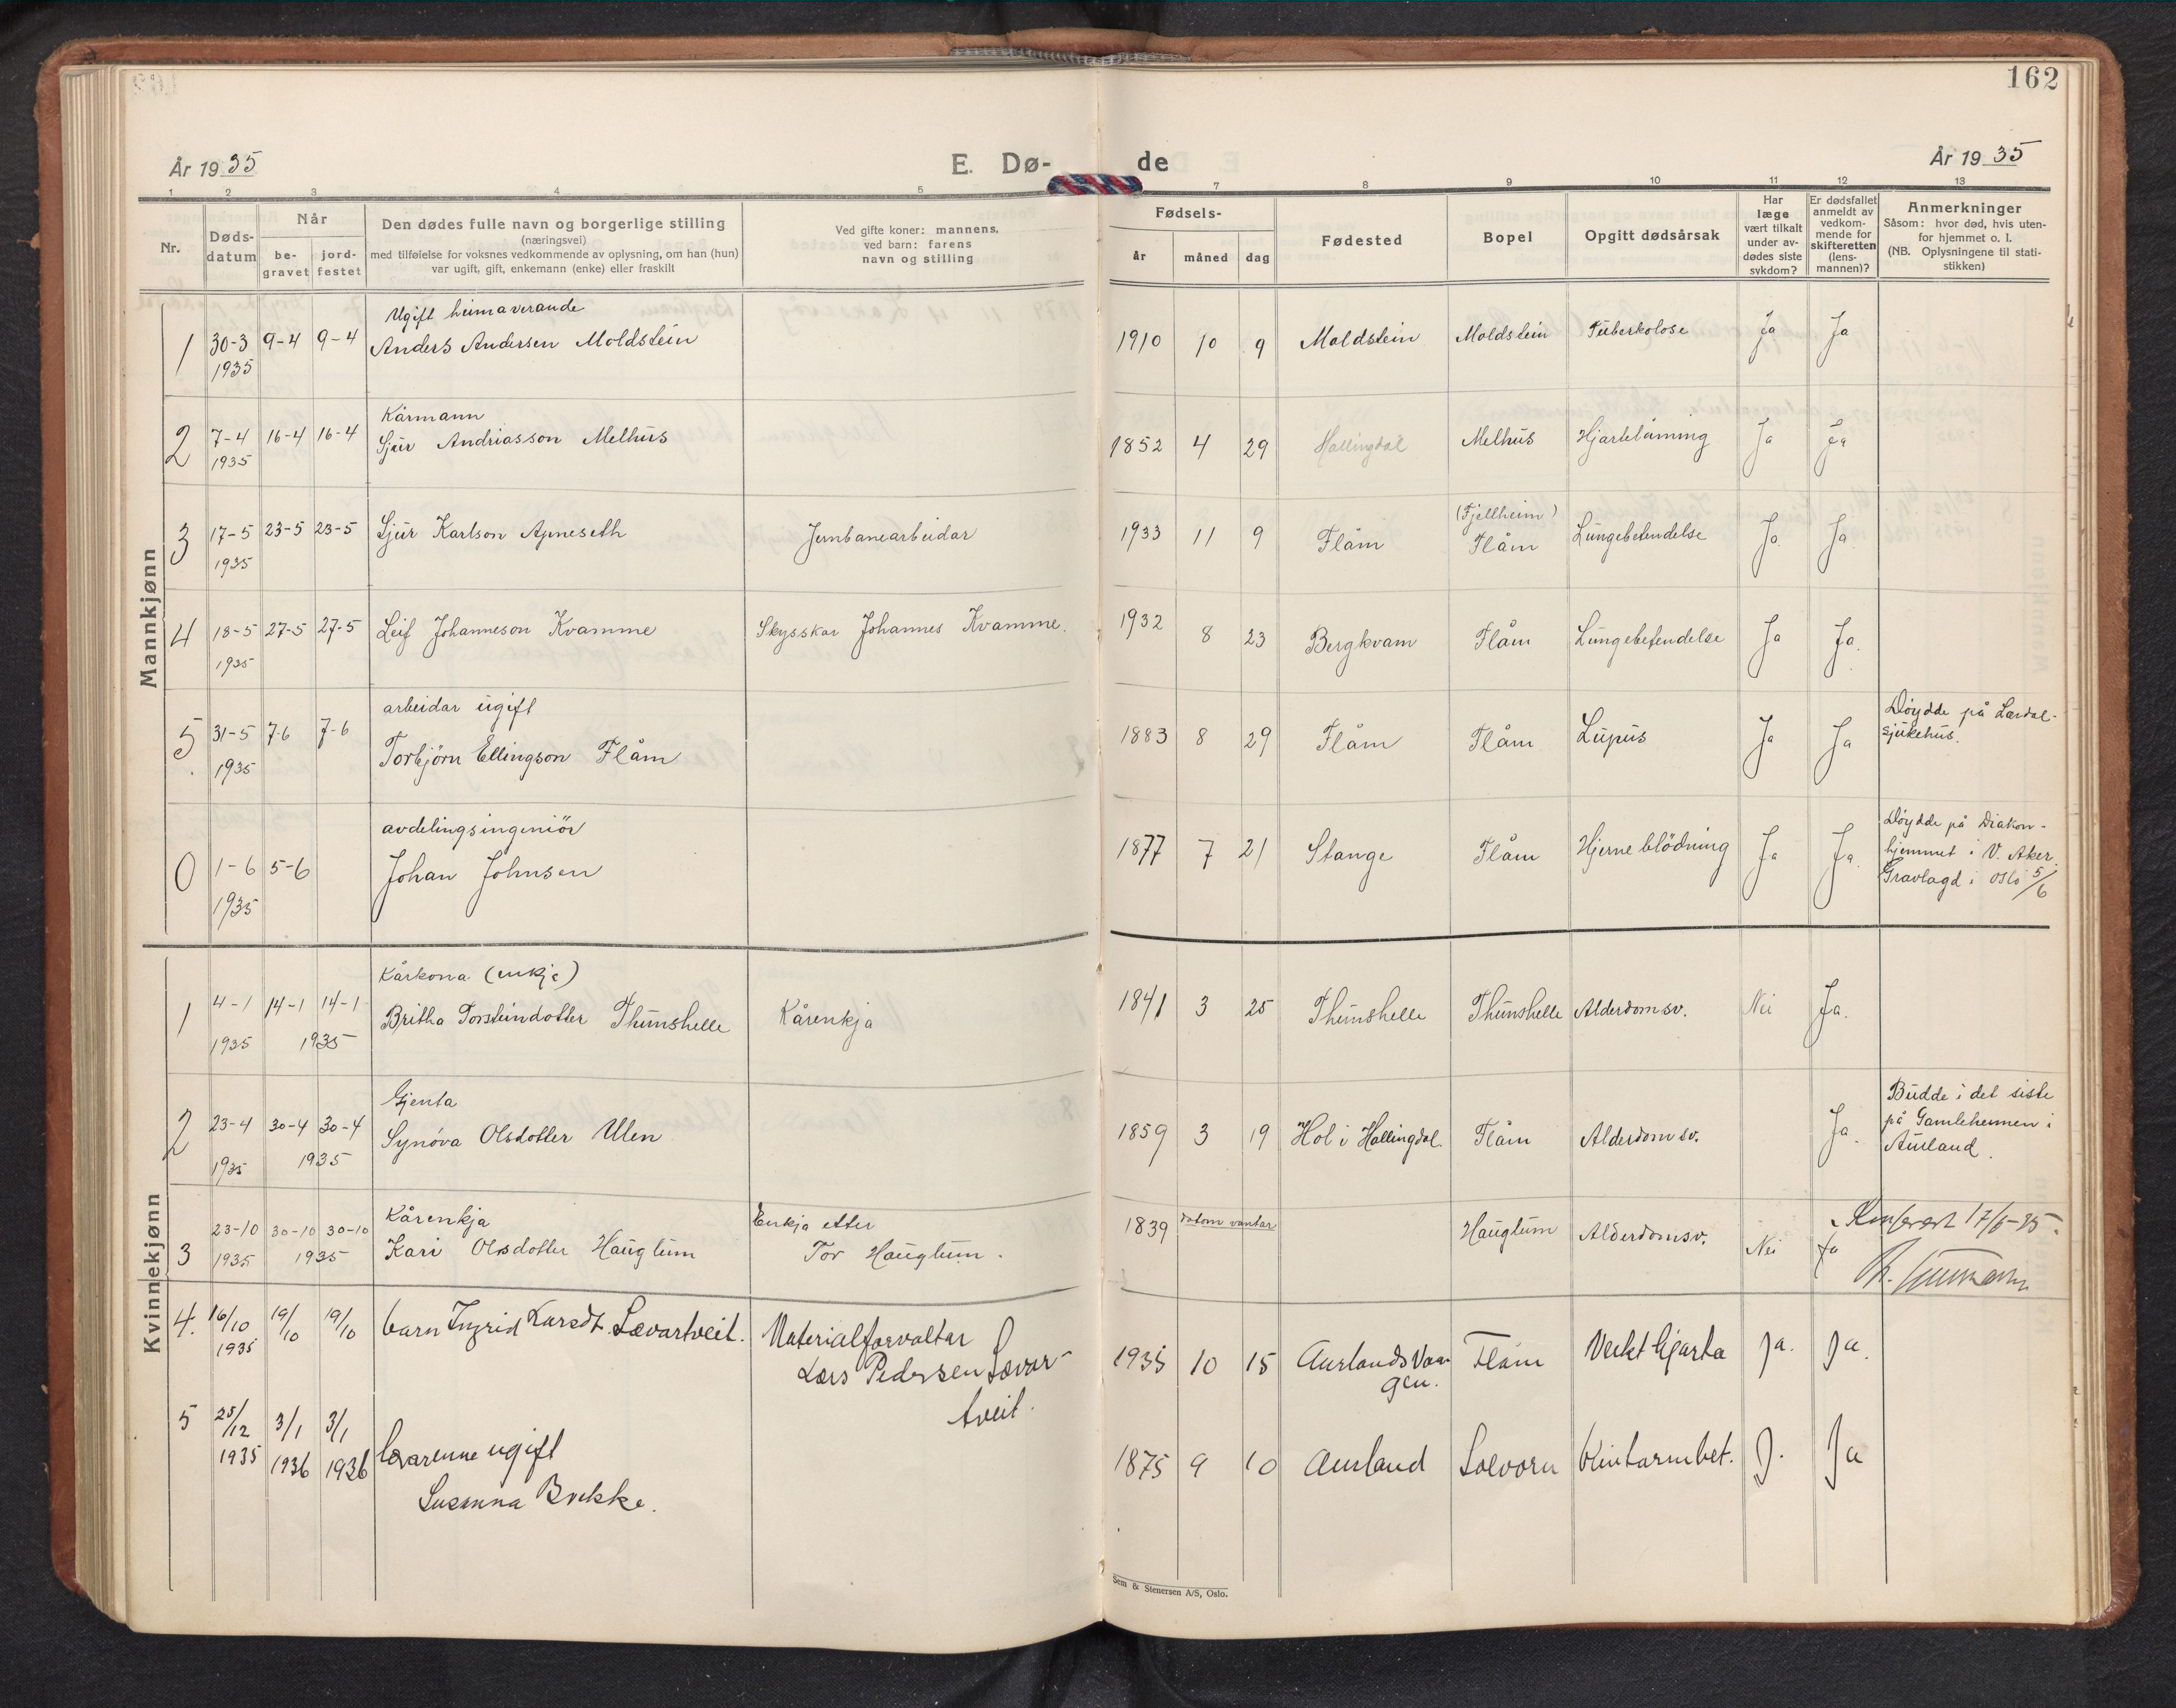 162
År 1935
E. Dø-
de
År 1935
1 2 3 4 5 7 8 9 10 11 12 13
Nr.
Døds-
datum
Når
be-
gravet
jord-
festet
Den dødes fulle navn og borgerlige stilling
(næringsvei)
med tilføielse for voksnes vedkommende av oplysning, om han (hun)
var ugift, gift, enkemann (enke) eller fraskilt
Ved gifte koner: mannens,
ved barn: farens
navn og stilling
Fødsels-
år måned dag
Fødested
Bopel
Opgitt dødsårsak
Har
læge
vært tilkalt
under av-
dødes siste
sykdom?
Er dødsfallet
anmeldt av
vedkom-
mende for
skifteretten
(lens-
mannen)?
Anmerkninger
Såsom: hvor død, hvis uten-
for hjemmet o. l.
(NB. Oplysningene til stati-
stikken)
Mannkjønn
Ugift heimaverande
1 30-3 9-4 9-4 Anders Andersen Moldstein 1910 10 9 Moldstein Moldstein Tuberkolose Ja Ja
1935
Kårmann
2 7-4 16-4 16-4 Sjur Andriasson Melhus 1852 4 29 Hallingdal Melhus Hjartelåming Ja Ja
1935
(Fjellheim)
3 17-5 23-5 23-5 Sjur Karlson Apneseth Jernbanearbeidar 1933 11 9 Flåm Flåm Lungebetendelse Ja Ja
1935
4 18-5 27-5 27-5 Leif Johanneson Kvamme Skysskar Johannes Kvamme. 1932 8 23 Bergkvam Flåm Lungebetendelse Ja Ja.
1935
arbeidar ugift
5 31-5 7-6 7-6 Torbjörn Ellingson Flåm 1883 8 29 Flåm Flåm Lupus Ja Ja Döydde på Lærdal-
1935 sjukehus.
avdelingsingeniör
0 1-6 5-6 Johan Johnsen 1877 7 21 Stange Flåm Hjerneblödning Ja Ja. Döydde på Diakon-
1935 hjemmet i V. Aker.
Gravlagd i Oslo 5/6
Kvinnekjønn
Kårkona (enkja)
1 4-1 14-1 14-1 Britha Torsteindotter Thunshelle Kårenkja 1841 3 25 Thunshelle Thunshelle Alderdomsv. Nei Ja.
1935 1935
Gjenta
2 23-4 30-4 30-4 Synöva Olsdotter Ulen 1859 3 19 Hol i Hallingdal. Flåm Alderdomsv. Ja. Budde i det siste
1935 1935 på Gamleheimen i
Aurland.
Kårenkja Enkja etter
3 23-10 30-10 30-10 Kari Olsdotter Hauglum Tor Hauglum. 1839 datom vantar Hauglum Alderdomsv. Nei Ja
1935 1935
17/6-35.
4. 16/10 19/10 19/10 barn Ingrid Larsdt. Lævartveit. Materialforvaltar 1935 10 15 Aurlandsvan- Flåm Veikt hjarta Ja. Ja.
1935 Lars Pedersen Lævar- gen.
tveit.
5 25/12 3/1 3/1 ugift 1875 9 10 Aurland Solvorn J. Ja
1935 1936 1936
Susanna Brekke.
Sem & Stenersen A/S, Oslo.